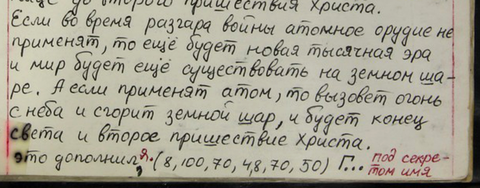 ещё до второго пришествия Христа.
Если во время разгара войны атомное орудие не
применят, то ещё будет новая тысячная эра
и мир будет ещё существовать на земном ша-
ре. А если применят атом, то вызовет огонь
с неба и сгорит земной шар, и будет конец
света и второе пришествие Христа.
это дополнил я. (8,100,70, 4,8,70, 50) Г... под секре-
том имя